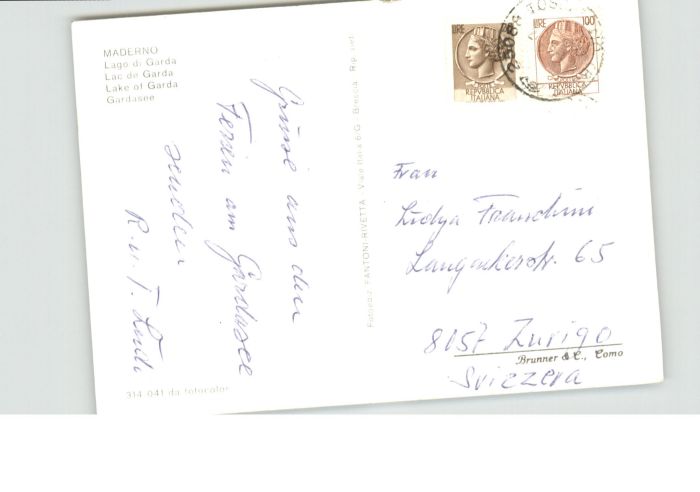 MADERNO
Lago di Garda
Lac de Garda
Lake of Garda
Gardasee
Grüsse aus den
Ferien am Gardasee
senden
R. u. T.
314 041 da fotocolor
Fotoediz. "FANTONI-RIVETTA Viale Italia 6/G - Brescia - Rip. viet.
LIRE
REPVBBLICA
ITALIANA
LIRE 100
REPVBBLICA
ITALIANA
Frau
Lidya
65
8057 Zurigo
Brunner & C., Como
Svizzera